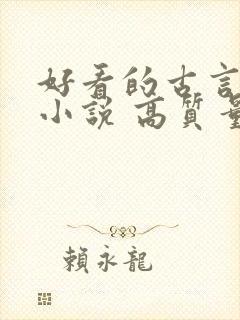 好看的古言
小説 高質量
賴永龍